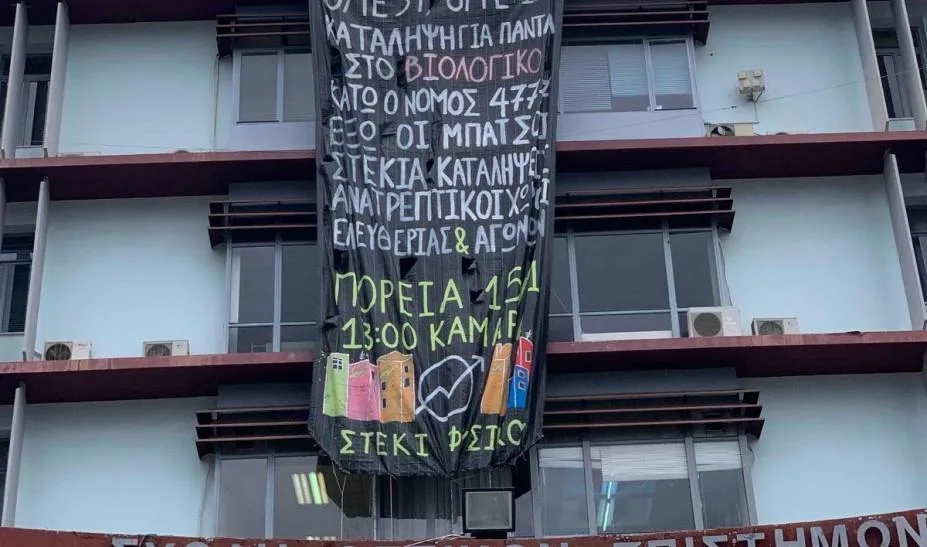 ΚΑΤΑΛΗΨΗ ΓΙΑ ΠΑΝΤΑ
ΣΤΟ ΒΙΟΛΟΓΙΚΟ
ΚΑΤΩ Ο ΝΟΜΟΣ 4777
ΕΞΩ ΟΙ ΜΠΑΤΣΟΙ
ΣΤΕΚΙΑ ΚΑΤΑΛΗΨΕΙ
ΑΝΑΤΡΕΠΤΙΚΟΙ ΧΩΡΟΙ
ΕΛΕΥΘΕΡΙΑΣ & ΑΓΩΝΩΝ
ΠΟΡΕΙΑ 15/1
13:00 ΚΑΜΑΡΑ
ΣΤΕΚΙ ΦΥΣΙΚΟ
ΣΧΟΛΗ ΘΕΤΙΚΩΝ ΕΠΙΣΤΗΜΩΝ